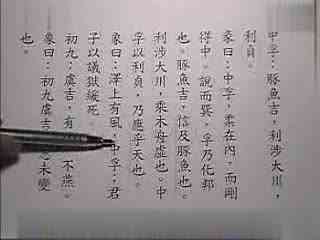 中孚：豚魚吉，利涉大川，
利貞。
彖曰：中孚，柔在內，而剛
得中。說而巽，孚乃化邦
也。豚魚吉，信及豚魚也。
利涉大川，乘木舟虛也。中
孚以利貞，乃應乎天也。
象曰：澤上有風，中孚，君
子以議獄緩死。
初九，虞吉，有 不燕。
象曰：初九虞吉， 未變
也。